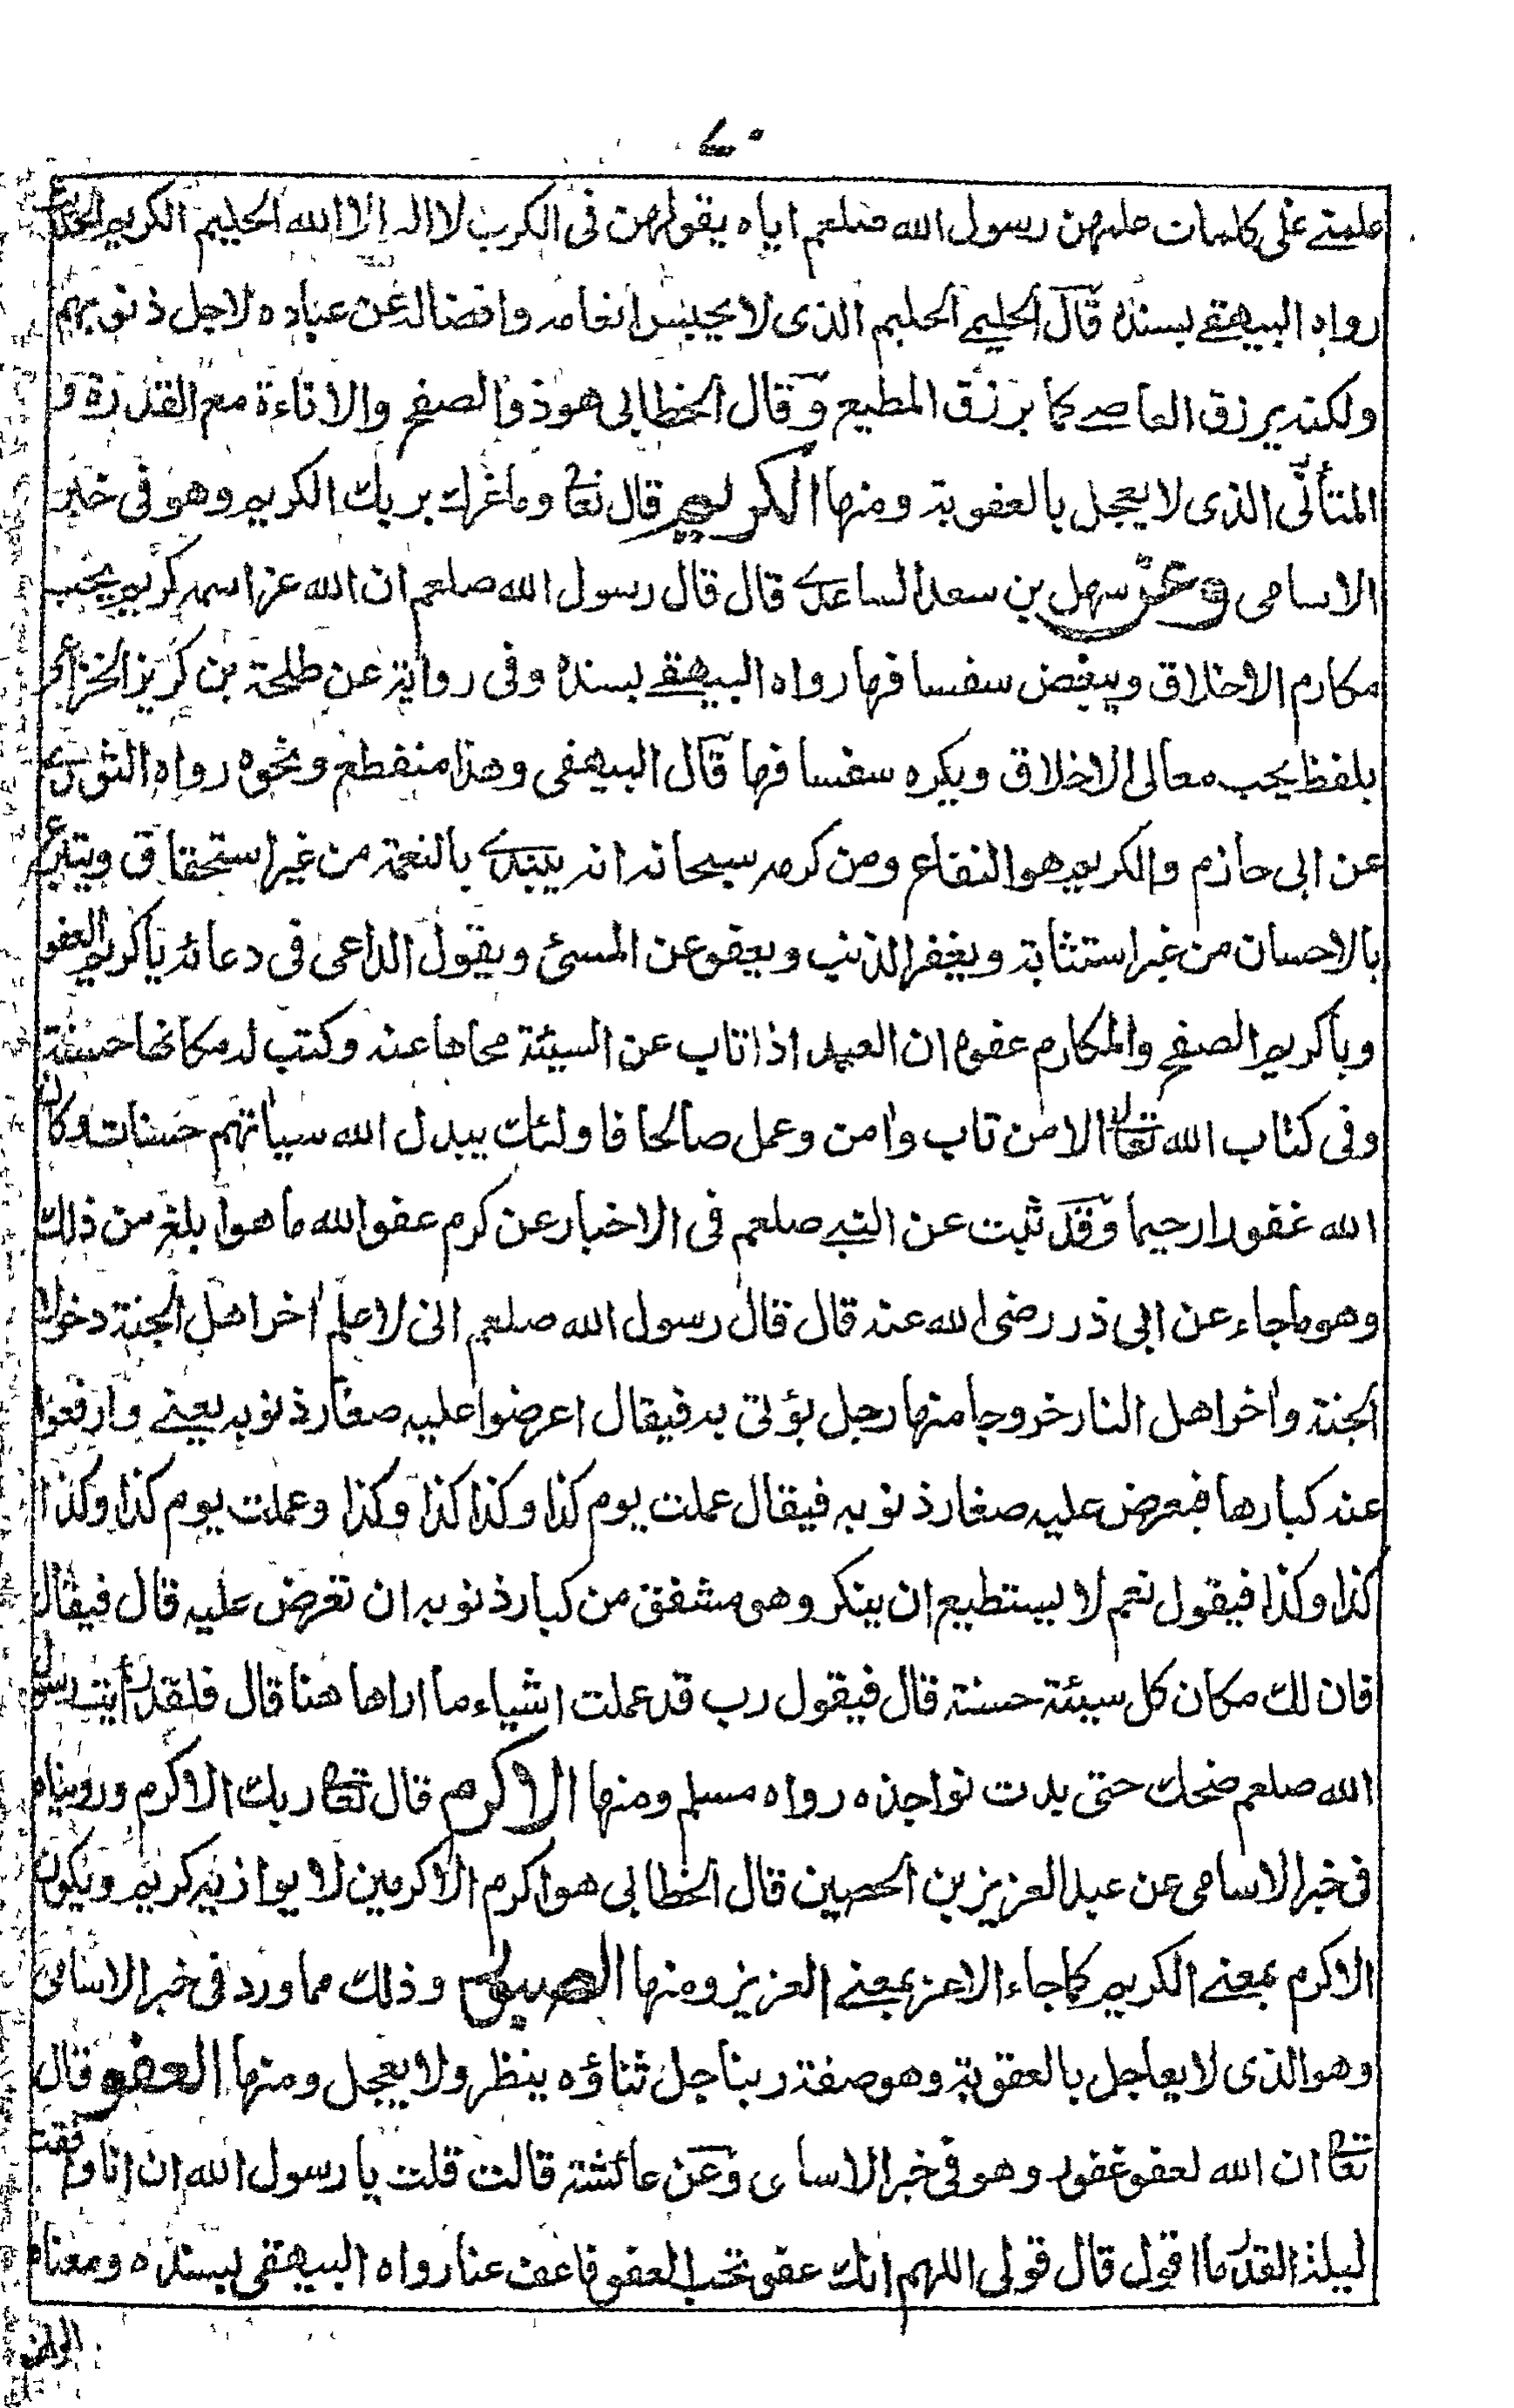 ٧٠
علمتے علی کلمات علمهن رسول الله صلعم ایاه یقولهن فی الکرب لا اله الا الله الحلیم الکریم الخ
رواه البیهقے بسنده قال الحلیمے الحلیم الذی لا یحبس انعامه وافضاله عن عباده لاجل ذنوبهم
ولکنه یرزق العاصے کما یرزق المطیع وقال الخطابی هو ذو الصفح والاناءة مع القدرة و
المتأنّی الذی لا یعجل بالعقوبة ومنها الکریم قال تعا وما غرك بربك الکریم وهو فی خبر
الاسامی وعن سهل بن سعد الساعدے قال قال رسول الله صلعم ان الله عز اسمه کریم یحب
مکارم الاخلاق ویبغض سفسافها رواه البیهقے بسنده وفی روایة عن طلحة بن کریز الخزاعے
بلفظ یحب معالی الاخلاق ویکره سفسافها قال البیهقی وهذا منقطع ونحوه رواه الثورے
عن ابی حازم والکریم هو النفاع ومن کرمه سبحانه انه یبتدے بالنعمة من غیر استحقاق ویتبرع
بالاحسان من غیر استثابة ویغفر الذنب ویعفو عن المسئ ویقول الداعی فی دعائه یا کریم العفو
ویا کریم الصفح والمکارم عفوه ان العبد اذا تاب عن السیئة محاها عنه وکتب له مکانها حسنة
وفی کتاب الله تعالی الا من تاب وامن وعمل صالحا فاولئك یبدل الله سیاٰتهم حسنات وکان
الله غفورا رحیما وقد ثبت عن النبے صلعم فی الاخبار عن کرم عفو الله ما هو ابلغ من ذلك
وهو ما جاء عن ابی ذر رضی الله عنه قال قال رسول الله صلعم انی لاعلم اٰخر اهل الجنة دخولا
الجنة واٰخر اهل النار خروجا منها رجل یؤتی به فیقال اعرضوا علیه صغار ذنوبه یعنے وارفعوا
عنه کبارها فیعرض علیه صغار ذنوبه فیقال عملت یوم کذا وکذا کذا وکذا وعملت یوم کذا وکذا
کذا وکذا فیقول نعم لا یستطیع ان ینکر وهو مشفق من کبار ذنوبه ان تعرض علیه قال فیقال
فان لك مکان کل سیئة حسنة قال فیقول رب قد عملت اشیاء ما اراها هنا قال فلقد رأیت رسول
الله صلعم ضحك حتی بدت نواجذه رواه مسلم ومنها الاکرم قال تعا وربك الاکرم ورویناه
فی خبر الاسامی عن عبد العزیز بن الحصین قال الخطابی هو اکرم الاکرمین لا یوازیه کریم ویکون
الاکرم بمعنے الکریم کما جاء الاعز بمعنے العزیز ومنها الصبور وذلك مما ورد فی خبر الاسامی
وهو الذی لا یعاجل بالعقوبة وهو صفة ربنا جل ثناؤه ینظر ولا یعجل ومنها العفو قال
تعا ان الله لعفو غفور وهو فی خبر الاسامی وعن عائشة قالت قلت یا رسول الله ان انا وافقت
لیلة القدر ما اقول قال قولی اللهم انك عفو تحب العفو فاعف عنا رواه البیهقی بسنده ومعناه